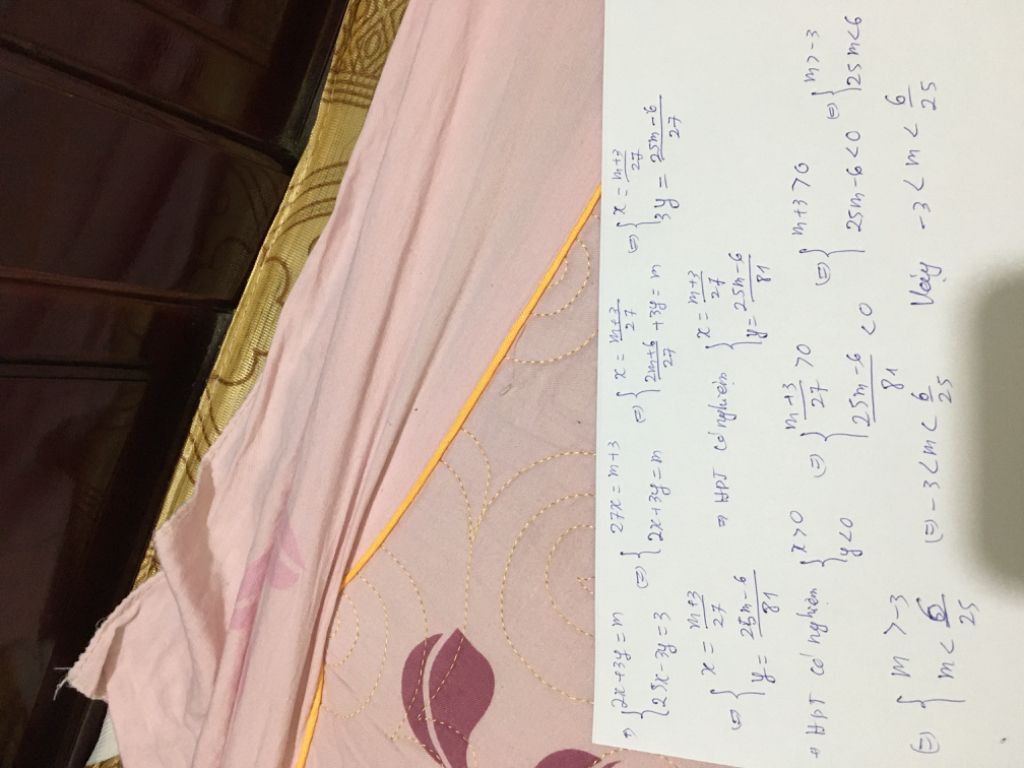 → { 2x+3y=m
25x-3y=3 (=) { 27x=m+3
2x+3y=m (=) { x = m+3/27
2m+6/27 + 3y = m (=) { x = m+3/27
3y = 25m-6/27
(=) { x = m+3/27
y = 25m-6/81 ⇒ HPT có nghiệm { x = m+3/27
y = 25m-6/81
→ HPT có nghiệm { x>0
y<0 (=) { m+3/27 >0
25m-6/81 <0 (=) { m+3>0
25m-6<0 (=) { m>-3
25m<6
(=) { m >-3
m< 6/25 (=) -3<m< 6/25 Vậy -3 < m < 6/25